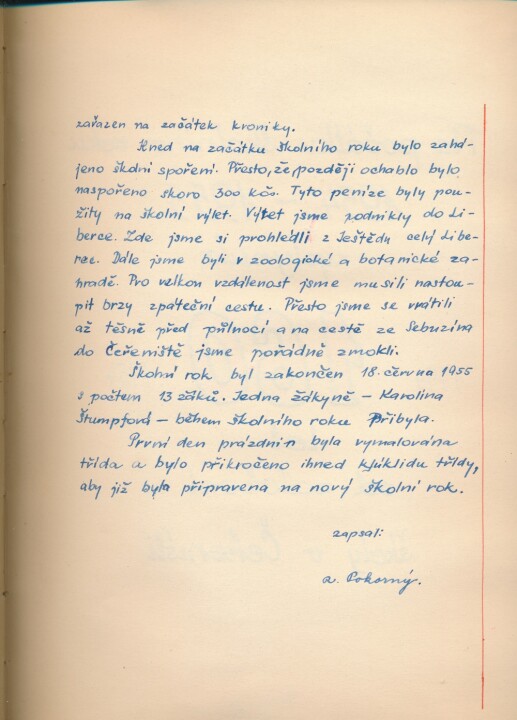 zařazen na začátek kroniky.
Hned na začátku školního roku bylo zahá-
jeno školní spoření. Přesto, že, později ochablo bylo
naspořeno skoro 300 Kčs. Tyto peníze byly pou-
žity na školní výlet. Výlet jsme podnikly do Li-
berce. Zde jsme si prohlédli z Ještědu celý Libe-
rec. Dále jsme byli v zoologické a botanické za-
hradě. Pro velkou vzdálenost jsme musili nastou-
pit brzy zpáteční cestu. Přesto jsme se vrátili
až těsně před půlnocí a na cestě ze Sebuzína
do Čeřeniště jsme pořádně zmokli.
Školní rok byl zakončen 18. června 1955
s počtem 13 žáků. Jedna žákyně – Karolina
Štumpfová – během školního roku přibyla.
První den prázdnin byla vymalována
třída a bylo přikročeno ihned k úklidu třídy,
aby již byla připravena na nový školní rok.
zapsal:
a. Pokorný.